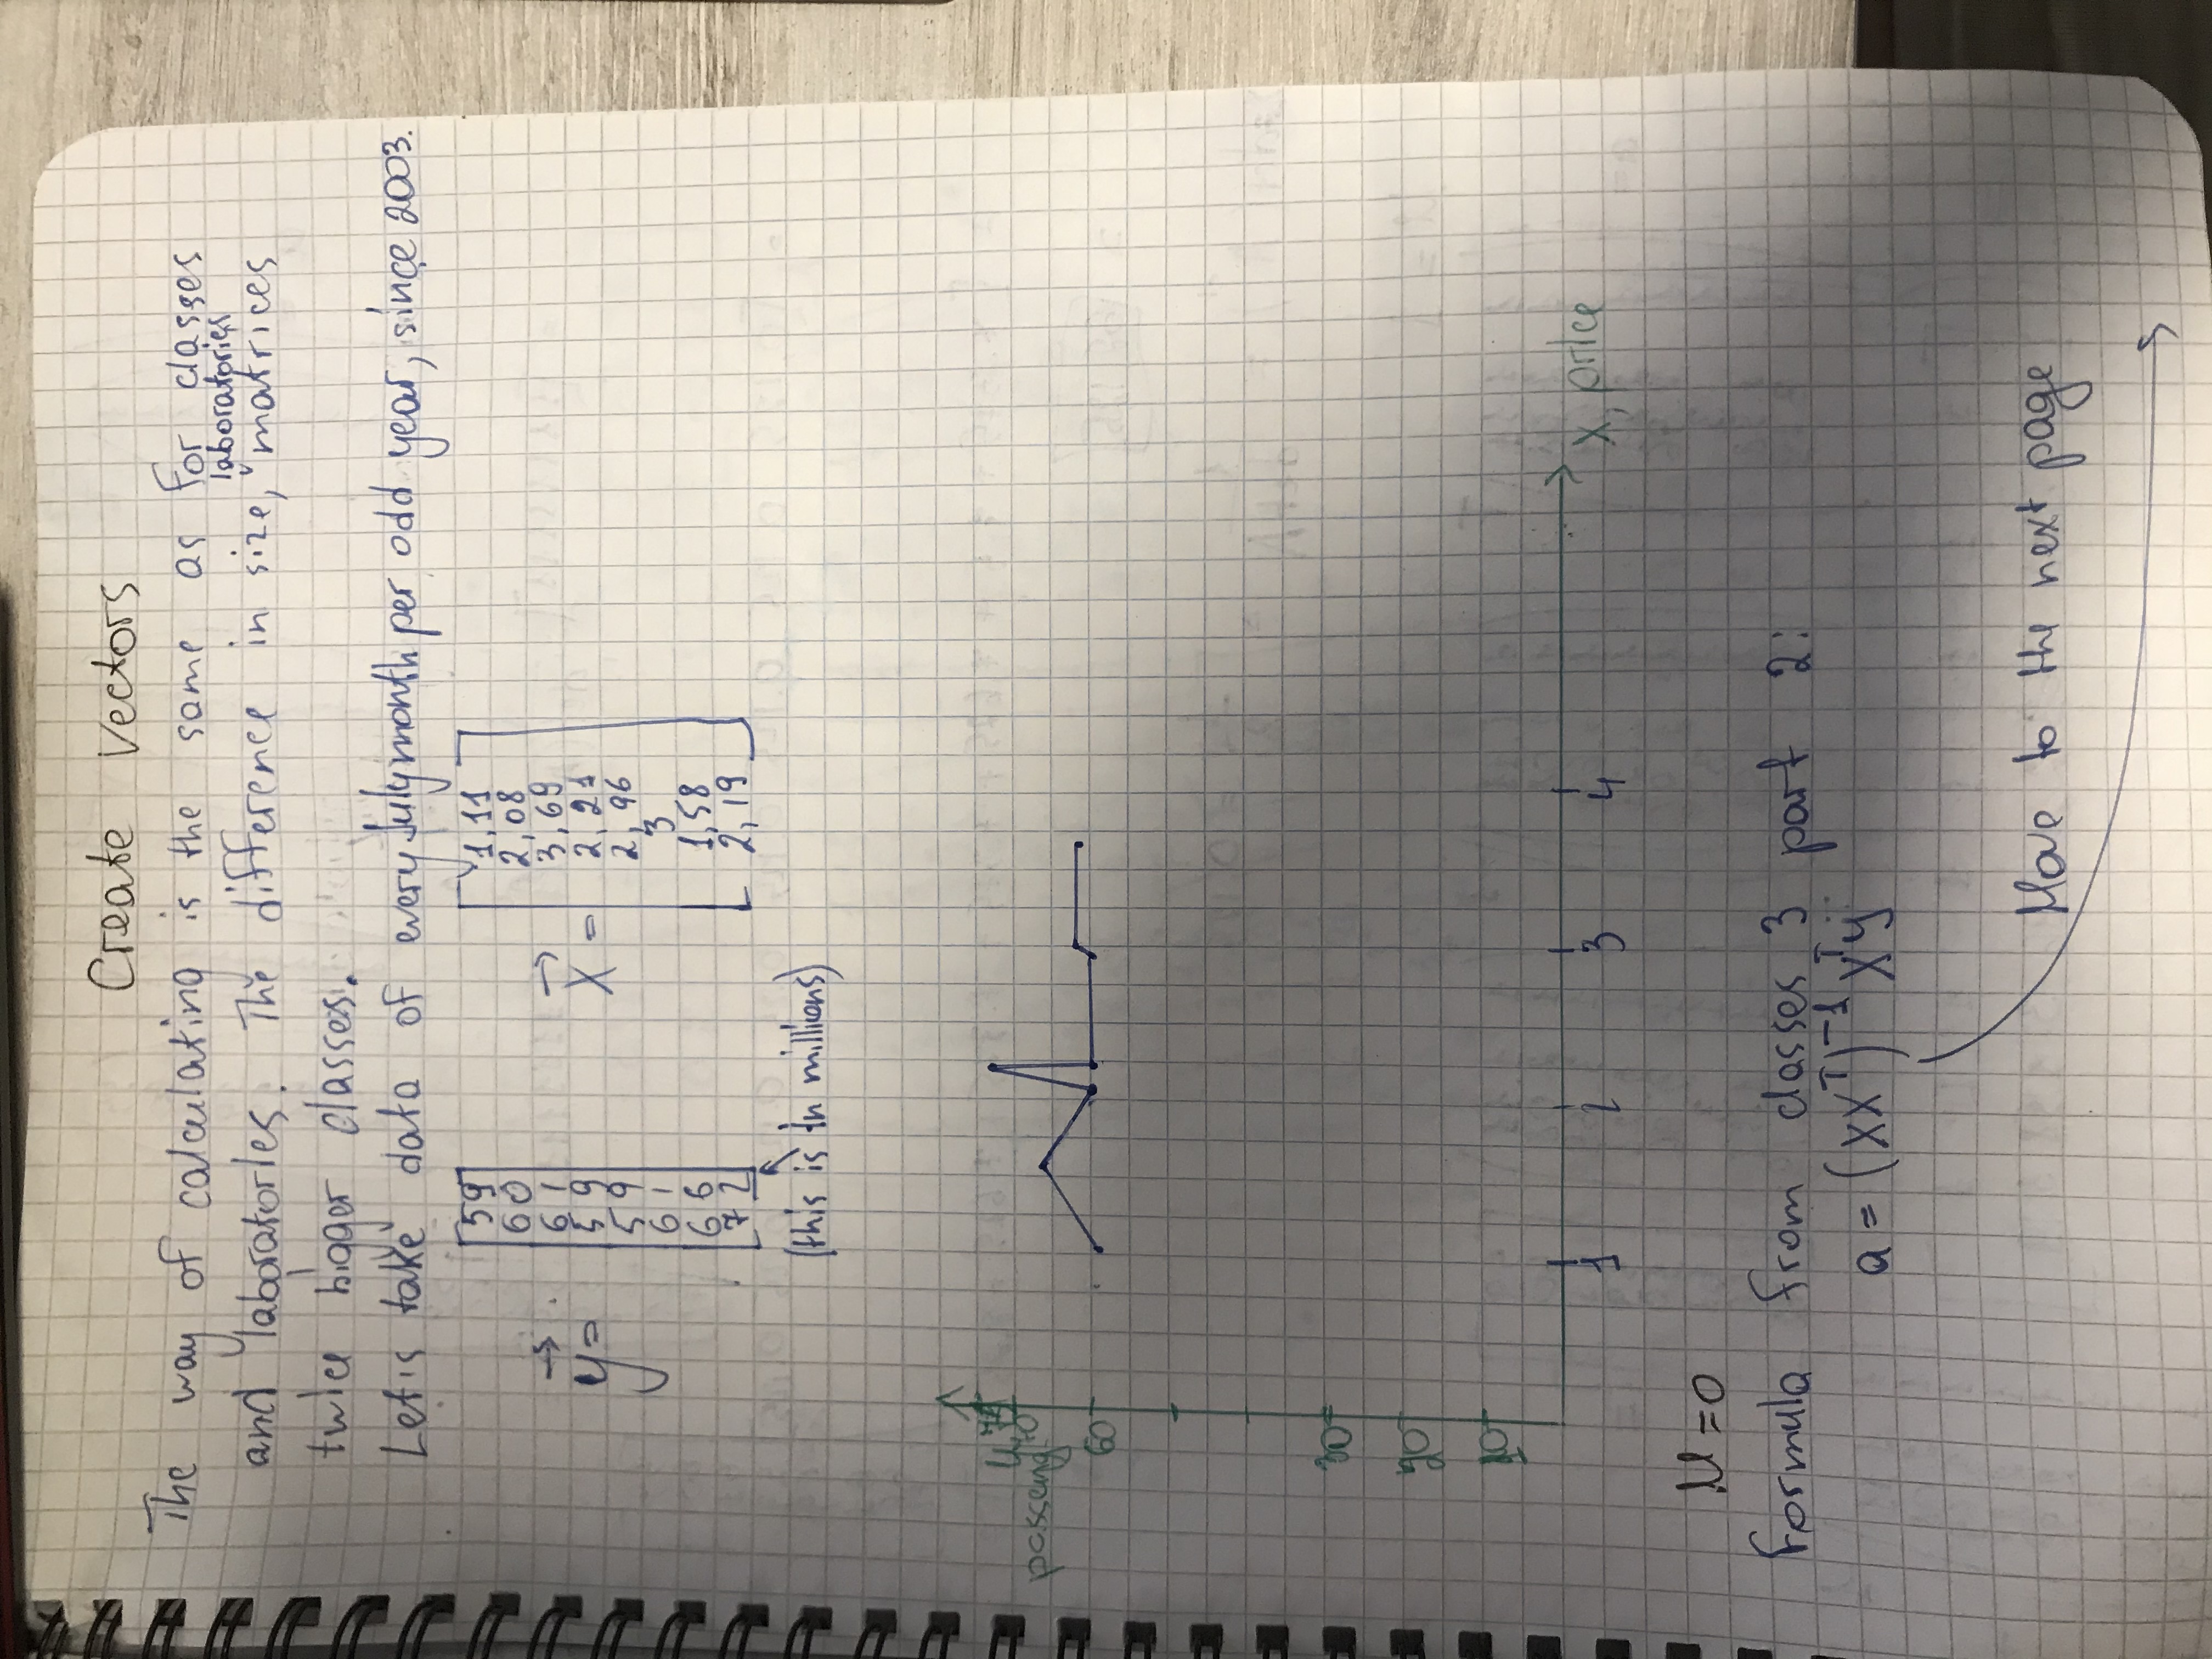 Create vectors
The way of calculating is the same as for classes
laboratories
and laboratories. The difference in size, matrices
twice bigger classes.
Let's take data of every July month per odd year, since 2003.
y = [59 60 61 59 59 61 66 72]
X = [1,11 2,08 3,69 2,21 2,96 3 1,58 2,19]
(this is in millions)
y, 72
passeng. 70
60
30
20
10
1 2 3 4
X, price
M=0
Formula from classes 3 part 2:
a = (XXᵀ)⁻¹ Xᵀy
Move to the next page